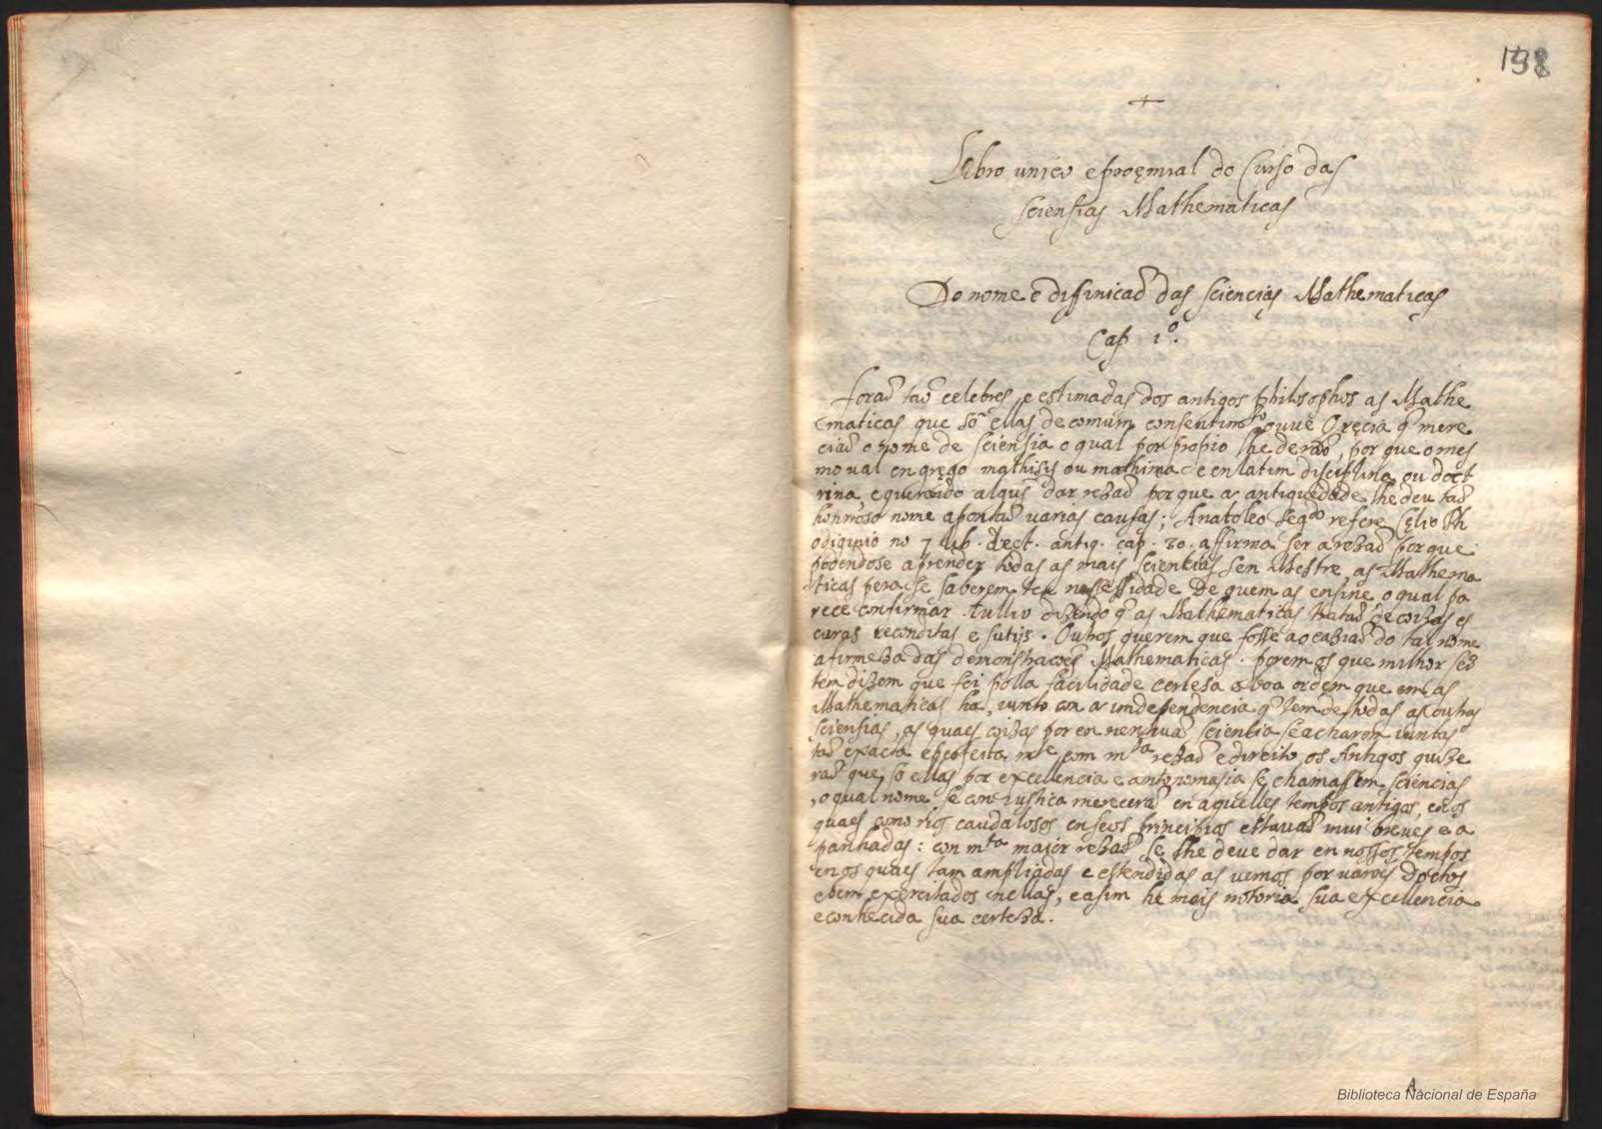 198
+
Libro unico e proęmial do Curso das
sciensias Mathematicas
Do nome e difinicaõ das sciencias Mathematicas
Cap 1º.
Foraõ taõ celebres, e estimadas dos antigos philosophos as Mathe
maticas que só ellas de comum consentimto ouve Grecia q̃ mere
ciaõ o nome de sciensia o qual por propio lhe deraõ, por que o mes
mo val en grego mathisis ou mathima e en latim disciplina ou doct
rina, e querendo algũs dar rezaõ porque a antiguedade lhe deu taõ
honrroso nome apontaõ varias causas; Anatoleo segdo refere Cęlio Rh
odiginio no 7 lib. lect. antiq. cap. 30. affirma ser a rezaõ porque
podendose aprender todas as mais sciencias sen Mestre, as Mathema
ticas pera se saberem tem nesessidade De quem as ensine, o qual pa
rece confirmar tullio dizendo q̃ as Mathematicas trataõ de coizas es
curas reconditas e sutijs. Outros querem que fosse a ocaziaõ do tal nome
a firmeza das demonstracoẽs Mathematicas. porem os que milhor sẽ
tem dizem que foi polla facilidade certesa e boa ordem que em as
Mathematicas ha, iunto con a independencia q̃ tem de todas as outras
sciensias, as quaes coizas por en nenhuã sciencia se acharem iuntas
taõ exacta e perfeita mte com mta rezaõ e direito os Antigos quize
raõ que só ellas por excellencia e antonomasia se chamassem sciencias
, o qual nome se con iustica mereceraõ en aquelles tempos antigos, en os
quaes como rios caudalosos en seos principios estavaõ mui breves e a
panhadas: con mta maior rezaõ se lhe deve dar en nossos tempos
en os quaes tam ampliadas e estendidas as vemos por varoẽs doctos
e bem exercitados nellas, e asim he mais notoria sua excellencia
e conhecida sua certeza.
A
Biblioteca Nacional de España